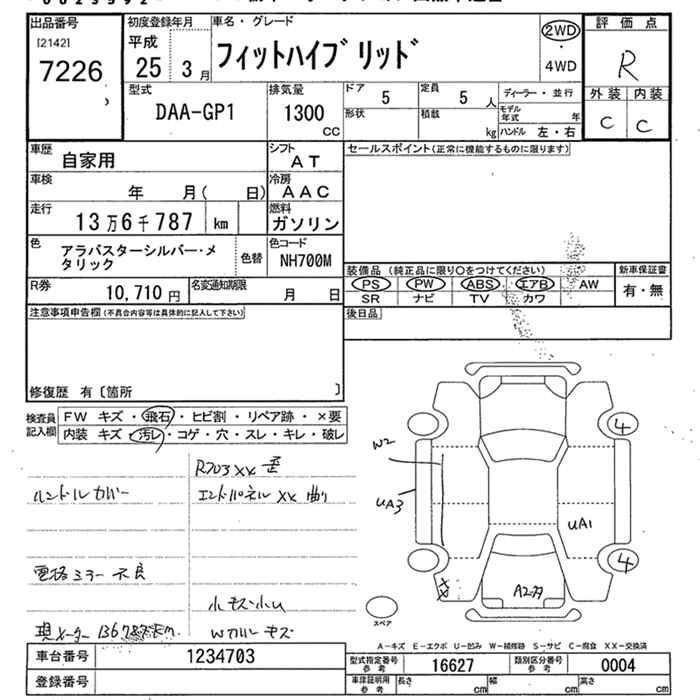 出品番号
[2142]
7226
初度登録年月
平成
25 3月
車名・グレード
フィットハイブリッド
2WD
・
4WD
評価点
R
外装 内装
C C
型式
DAA-GP1
排気量
1300
CC
ドア
5
定員
5 人
形状
積載
kg
ディーラー・並行
モデル年式 年
ハンドル 左・右
車歴
自家用
シフト
AT
セールスポイント(正常に機能するものに限ります)
車検
年 月( 日)
冷房
AAC
走行
13万6千787 km
燃料
ガソリン
色
アラバスターシルバー・メタリック
色替
色コード
NH700M
R券
10,710円
名変通知期限
月 日
装備品 (純正品に限り〇をつけてください)
新車保証書
PS PW ABS エアB AW
SR ナビ TV カワ
有・無
注意事項申告欄(不具合内容等は具体的に記入して下さい)
後日品
修復歴 有〔箇所 〕
検査員記入欄
FW キズ・飛石・ヒビ割・リペア跡・×要
内装 キズ・汚レ・コゲ・穴・スレ・キレ・破レ
ハンドルカバー
エンドパネル XX 曲り
電格ミラー不良
小キズ小凹
現メーター
W2
UA3
UA1
4
4
スペア
A-キズ E-エクボ U-凹み W-補修跡 S-サビ C-腐食 XX-交換済
車台番号
1234703
登録番号
型式指定番号
参考
16627
類別区分番号
参考
0004
車庫証明用
参考
長さ cm 幅 cm 高さ cm